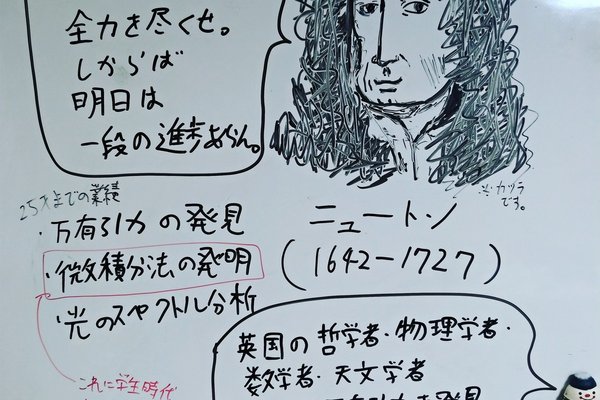 全力を尽くせ。
しからば
明日は
一段の進歩あらん。
※カツラ
です。
25才までの業績
・万有引力の発見
・微積分法の発明
・光のスペクトル分析
ニュートン
(1642-1727)
これに学生時代
英国の哲学者・物理学者・
数学者・天文学者
万有引力を発見